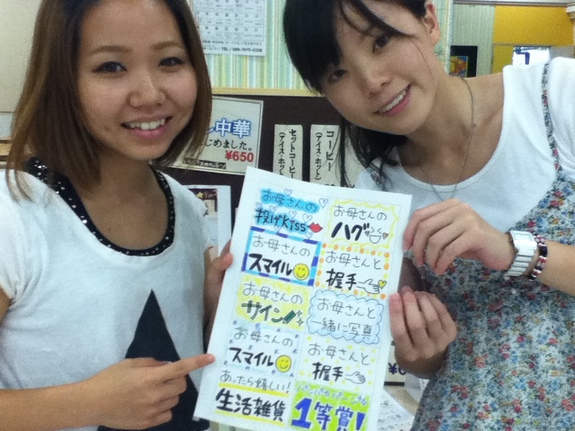 中華
じめました。
¥650
コーヒー
(アイス・ホット)
セットコーヒー
(アイス・ホット)
お母さんの
投げKiss
お母さんの
ハグ
お母さんの
スマイル
お母さんと
握手
お母さんの
サイン
お母さんと
一緒に写真
お母さんの
スマイル
お母さんと
握手
あったら嬉しい!
生活雑貨
1等賞!